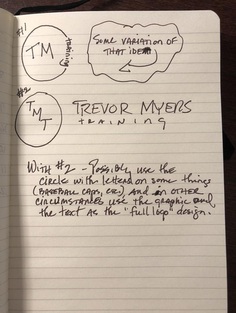 #1
TM
training
Some variation of
that idea
#2
T
M
T
Trevor Myers
training
With #2 - Possibly use the
circle with letters on some things
(baseball caps, etc) and in other
circumstances use the graphic and
the text as the "full logo" design.